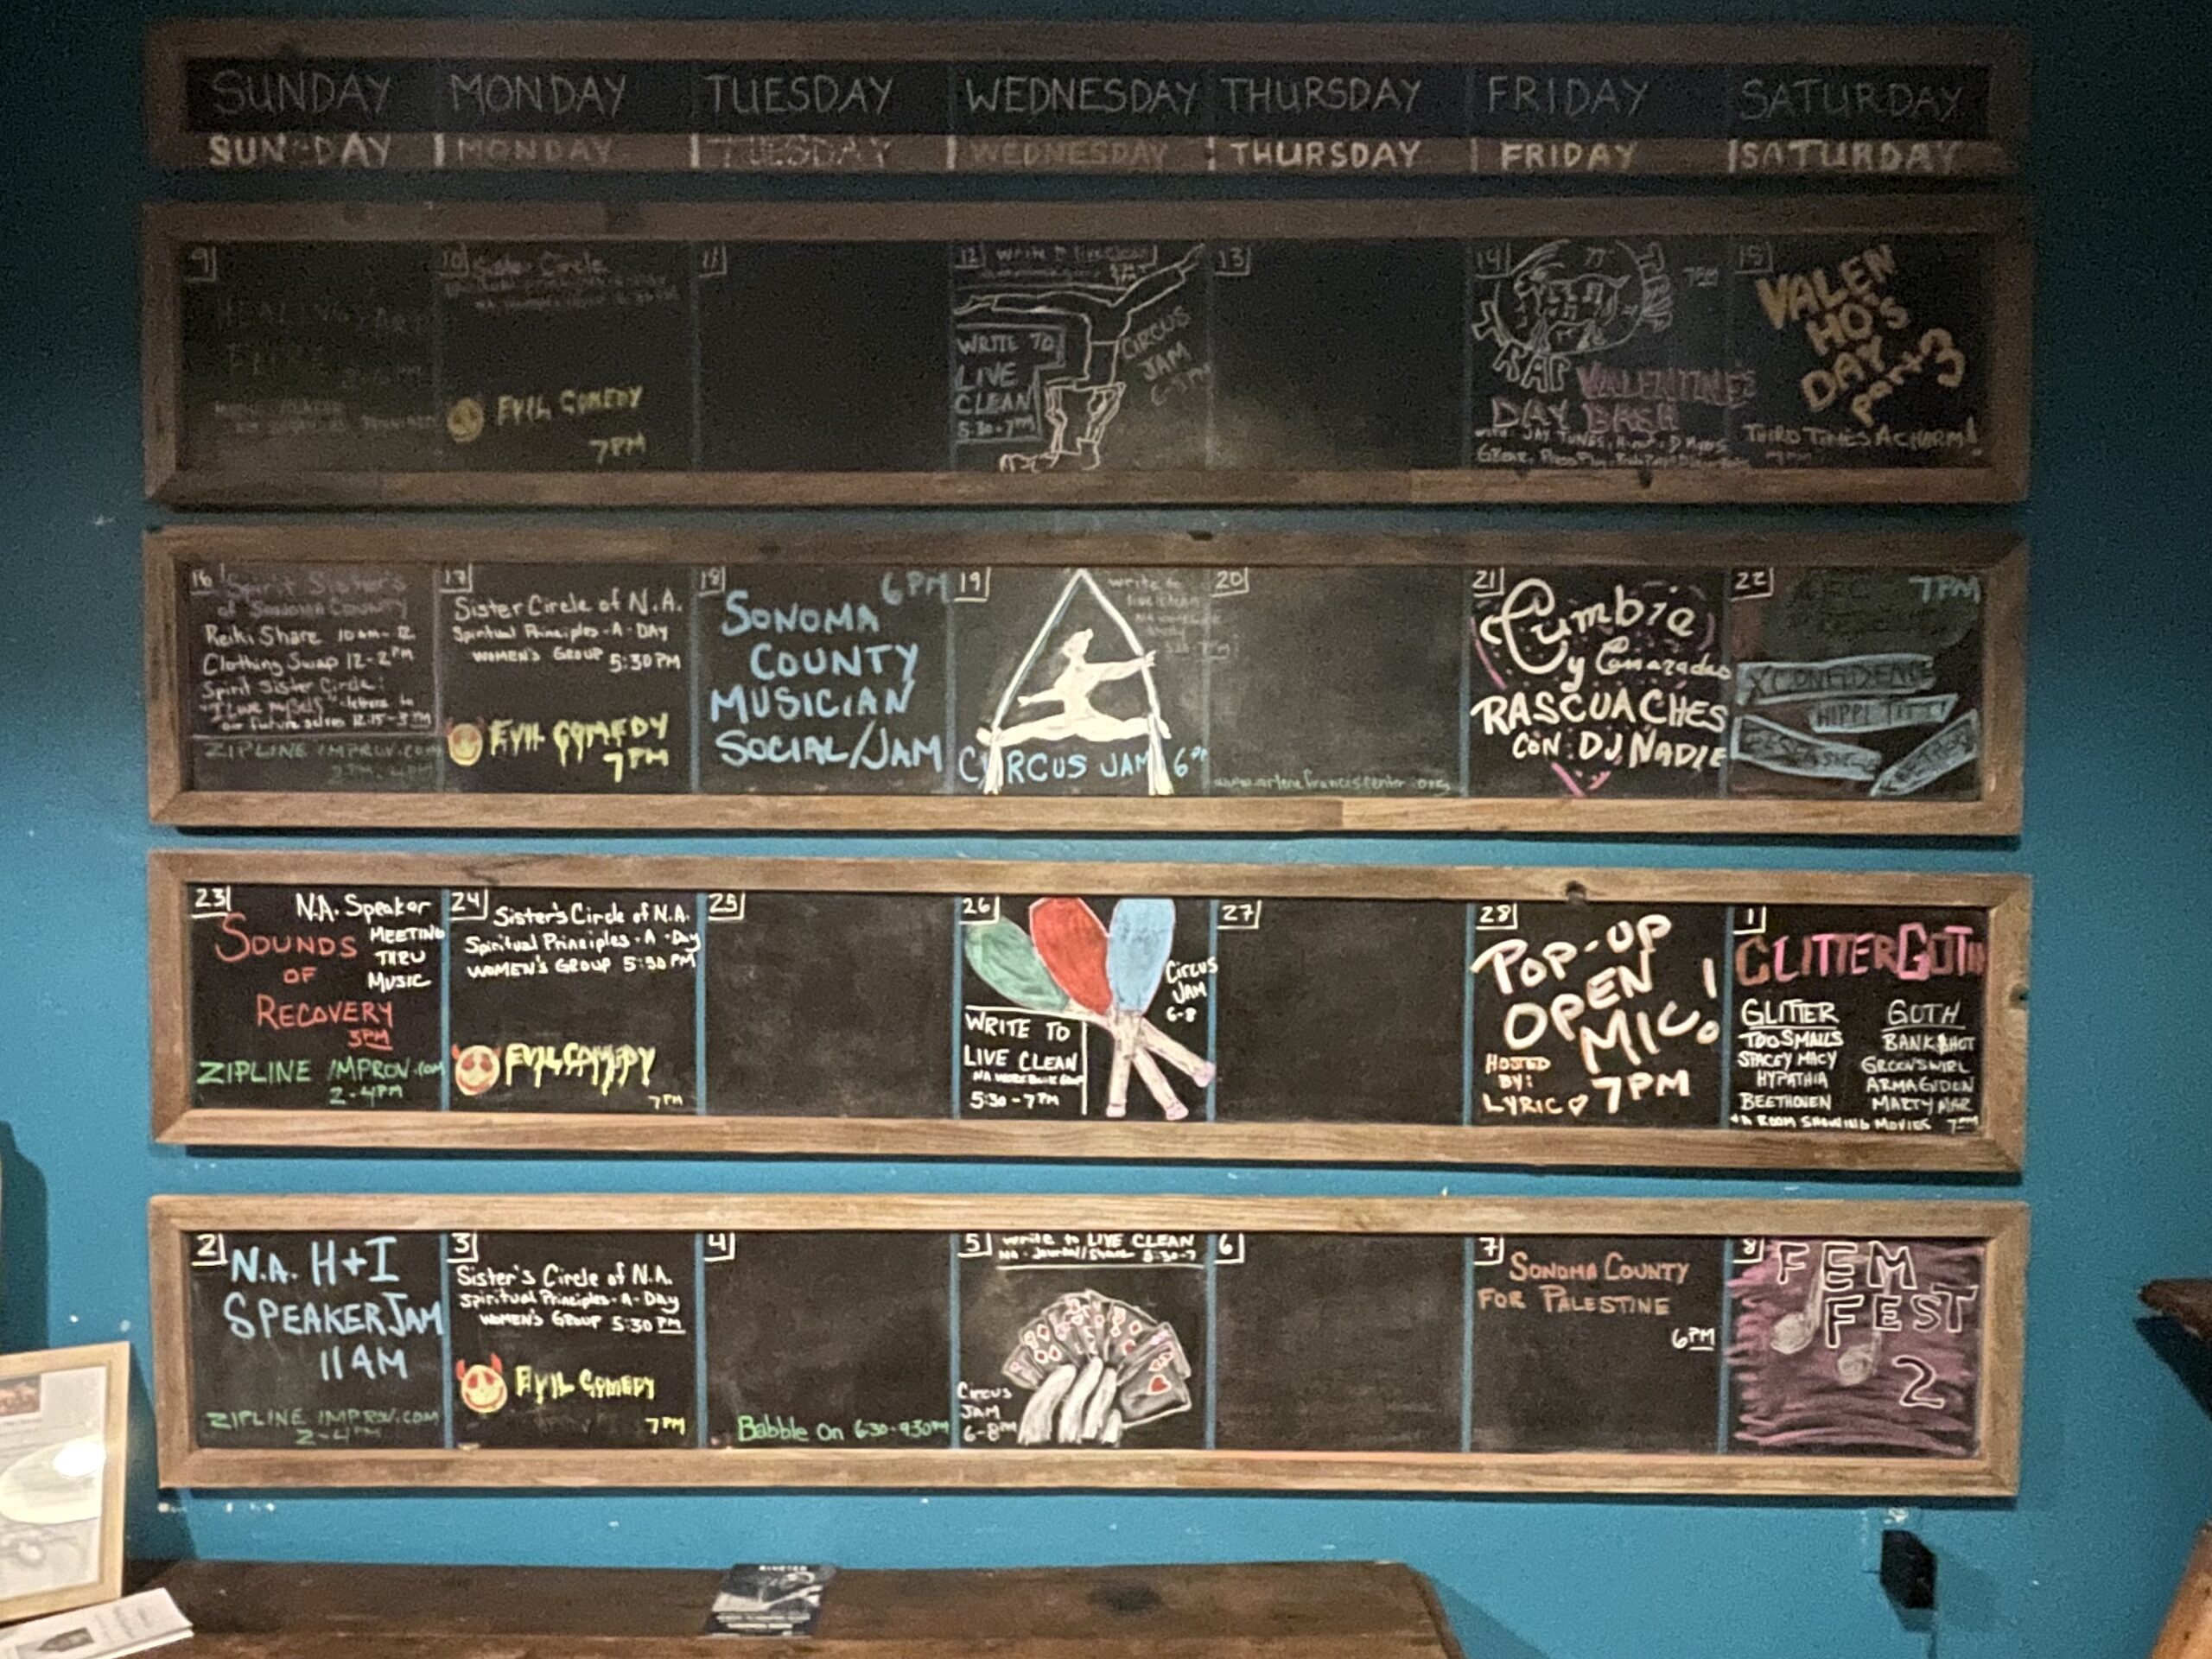 SUNDAY MONDAY TUESDAY WEDNESDAY THURSDAY FRIDAY SATURDAY
SUNDAY MONDAY TUESDAY WEDNESDAY THURSDAY FRIDAY SATURDAY
9
HEALING ART
10
Sister Circle
EVIL COMEDY
7PM
11
12
Write to live Clean
WRITE TO
LIVE
CLEAN
5:30-7PM
CIRCUS
JAM
13
14
7PM
RAP VALENTINE'S
DAY BASH
15
VALEN
HO'S
DAY
Part 3
THIRD TIMES A CHARM!
16
Spirit Sister's
of SONOMA COUNTY
Reiki Share 10am-12
Clothing Swap 12-2PM
Spirit Sister Circle:
"I love myself" letters to
our future selves 12:15-3PM
ZIPLINE IMPROV.COM
2PM-4PM
17
Sister Circle of N.A.
Spiritual Principles-A-DAY
WOMEN'S GROUP 5:30PM
EVIL COMEDY
7PM
18
6PM
SONOMA
COUNTY
MUSICIAN
SOCIAL/JAM
19
write to
live clean
CIRCUS JAM 6
20
www.arlenefranciscenter.org
21
Cumbia
y Camaradas
RASCUACHES
CON DJ NADIE
22
7PM
XCONFIDENCE
23
N.A. Speaker
MEETING
THRU
MUSIC
SOUNDS
OF
RECOVERY
3PM
ZIPLINE IMPROV.COM
2-4PM
24
Sister's Circle of N.A.
Spiritual Principles-A-Day
WOMEN'S GROUP 5:30PM
EVIL COMEDY
7PM
25
26
CIRCUS
JAM
6-8
WRITE TO
LIVE CLEAN
5:30-7PM
27
28
POP-UP
OPEN
MIC!
HOSTED
BY:
LYRIC ♡ 7PM
1
GLITTERGOTH
GLITTER GOTH
TOO SMALLS BANK$HOT
STACEY MACY GREENSWIRL
HYPATHIA ARMAGIDON
BEETHOVEN MARTY MAR
+A ROOM SHOWING MOVIES 7PM
2
N.A. H+I
SPEAKER JAM
11AM
ZIPLINE IMPROV.COM
2-4PM
3
Sister's Circle of N.A.
Spiritual Principles-A-Day
WOMEN'S GROUP 5:30PM
EVIL COMEDY
7PM
4
Babble On 6:30-9:30PM
5
Write to LIVE CLEAN
NA-Journal/Share 5:30-7
CIRCUS
JAM
6-8PM
6
7
SONOMA COUNTY
FOR PALESTINE
6PM
8
FEM
FEST
2